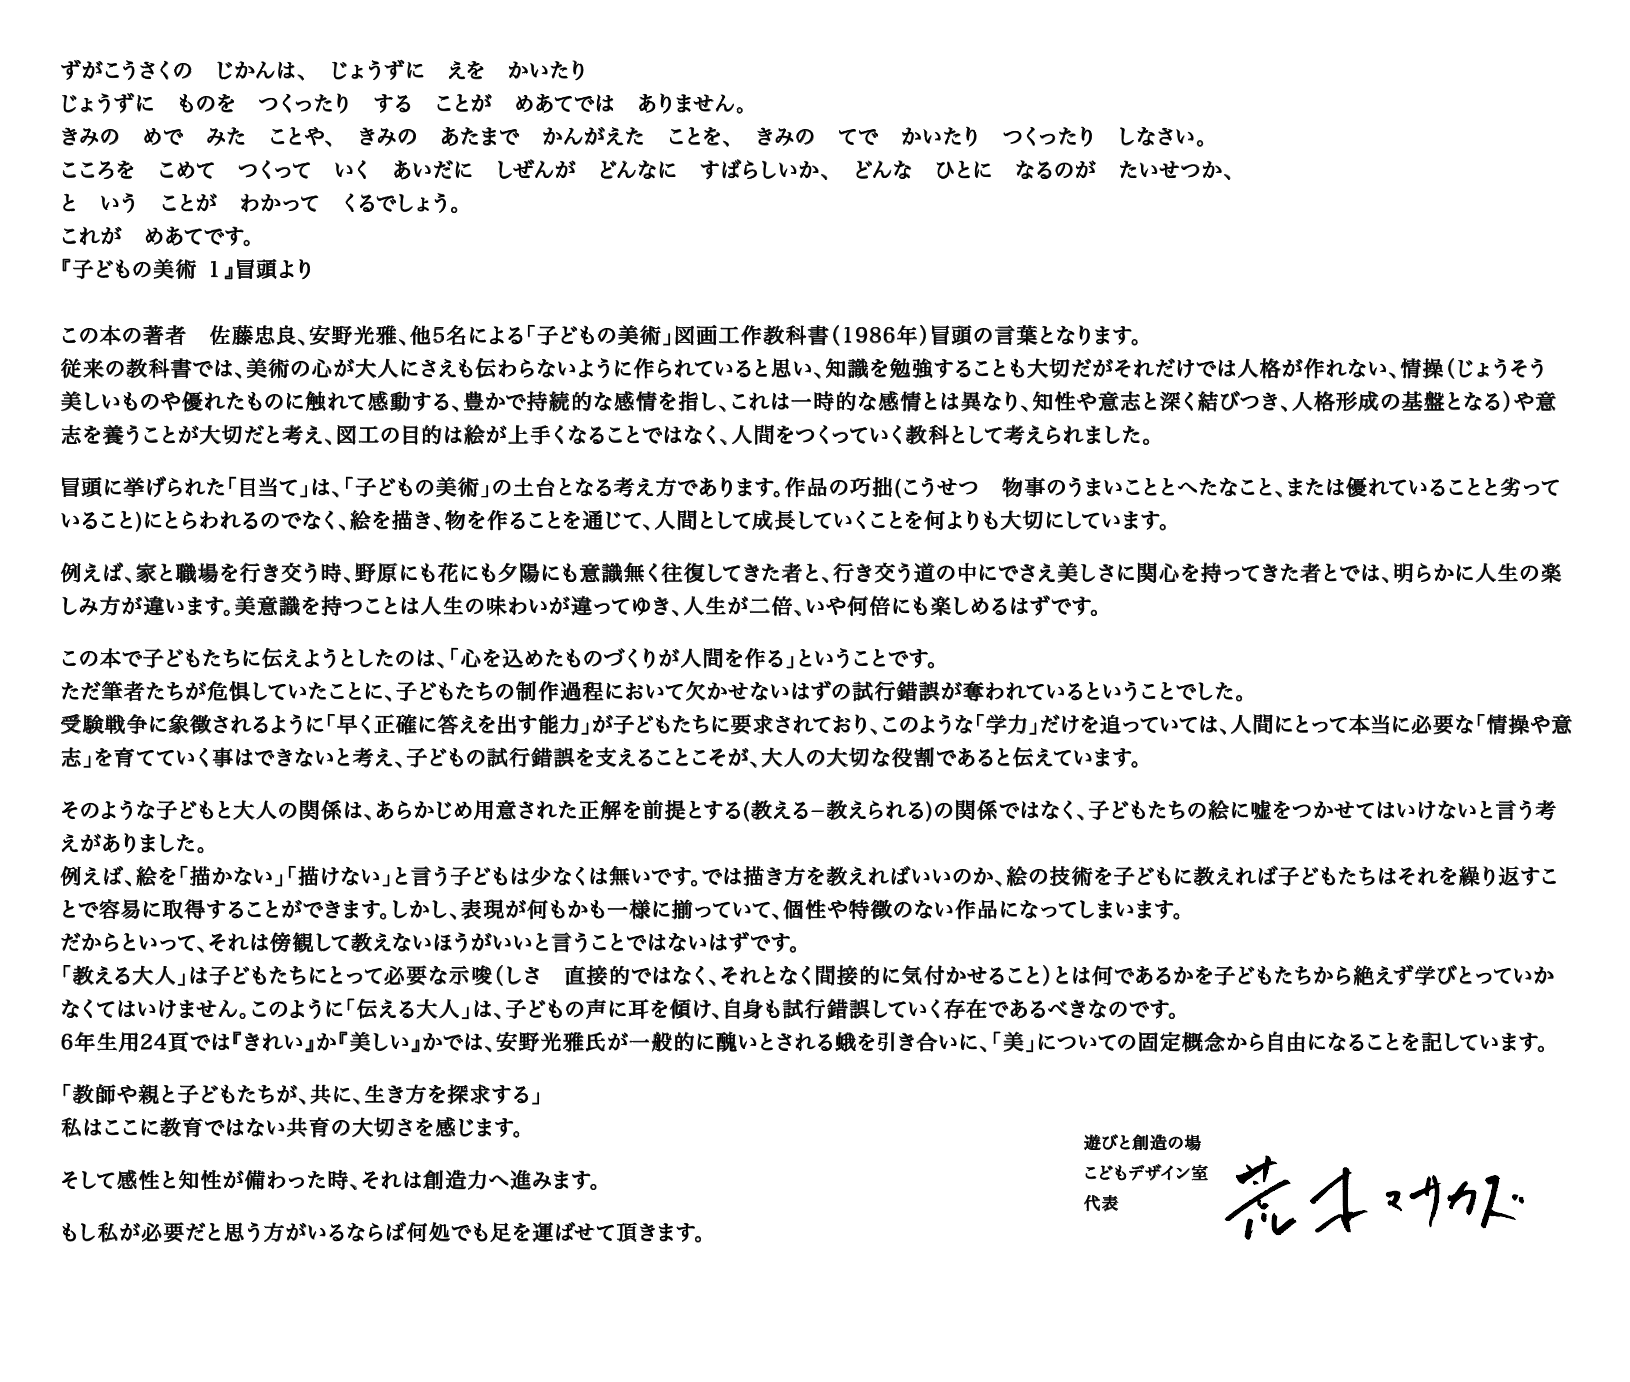 ずがこうさくの　じかんは、　じょうずに　えを　かいたり
じょうずに　ものを　つくったり　する　ことが　めあてでは　ありません。
きみの　めで　みた　ことや、　きみの　あたまで　かんがえた　ことを、　きみの　てで　かいたり　つくったり　しなさい。
こころを　こめて　つくって　いく　あいだに　しぜんが　どんなに　すばらしいか、　どんな　ひとに　なるのが　たいせつか、
と　いう　ことが　わかって　くるでしょう。
これが　めあてです。
『子どもの美術 1』冒頭より
この本の著者　佐藤忠良、安野光雅、他5名による「子どもの美術」図画工作教科書（1986年）冒頭の言葉となります。
従来の教科書では、美術の心が大人にさえも伝わらないように作られていると思い、知識を勉強することも大切だがそれだけでは人格が作れない、情操（じょうそう
美しいものや優れたものに触れて感動する、豊かで持続的な感情を指し、これは一時的な感情とは異なり、知性や意志と深く結びつき、人格形成の基盤となる）や意
志を養うことが大切だと考え、図工の目的は絵が上手くなることではなく、人間をつくっていく教科として考えられました。
冒頭に挙げられた「目当て」は、「子どもの美術」の土台となる考え方であります。作品の巧拙(こうせつ　物事のうまいこととへたなこと、または優れていることと劣って
いること)にとらわれるのでなく、絵を描き、物を作ることを通じて、人間として成長していくことを何よりも大切にしています。
例えば、家と職場を行き交う時、野原にも花にも夕陽にも意識無く往復してきた者と、行き交う道の中にでさえ美しさに関心を持ってきた者とでは、明らかに人生の楽
しみ方が違います。美意識を持つことは人生の味わいが違ってゆき、人生が二倍、いや何倍にも楽しめるはずです。
この本で子どもたちに伝えようとしたのは、「心を込めたものづくりが人間を作る」ということです。
ただ筆者たちが危惧していたことに、子どもたちの制作過程において欠かせないはずの試行錯誤が奪われているということでした。
受験戦争に象徴されるように「早く正確に答えを出す能力」が子どもたちに要求されており、このような「学力」だけを追っていては、人間にとって本当に必要な「情操や意
志」を育てていく事はできないと考え、子どもの試行錯誤を支えることこそが、大人の大切な役割であると伝えています。
そのような子どもと大人の関係は、あらかじめ用意された正解を前提とする(教える–教えられる)の関係ではなく、子どもたちの絵に嘘をつかせてはいけないと言う考
えがありました。
例えば、絵を「描かない」「描けない」と言う子どもは少なくは無いです。では描き方を教えればいいのか、絵の技術を子どもに教えれば子どもたちはそれを繰り返すこ
とで容易に取得することができます。しかし、表現が何もかも一様に揃っていて、個性や特徴のない作品になってしまいます。
だからといって、それは傍観して教えないほうがいいと言うことではないはずです。
「教える大人」は子どもたちにとって必要な示唆（しさ　直接的ではなく、それとなく間接的に気付かせること）とは何であるかを子どもたちから絶えず学びとっていか
なくてはいけません。このように「伝える大人」は、子どもの声に耳を傾け、自身も試行錯誤していく存在であるべきなのです。
6年生用24頁では『きれい』か『美しい』かでは、安野光雅氏が一般的に醜いとされる蛾を引き合いに、「美」についての固定概念から自由になることを記しています。
「教師や親と子どもたちが、共に、生き方を探求する」
私はここに教育ではない共育の大切さを感じます。
そして感性と知性が備わった時、それは創造力へ進みます。
もし私が必要だと思う方がいるならば何処でも足を運ばせて頂きます。
遊びと創造の場
こどもデザイン室
代表
荒木マサカズ